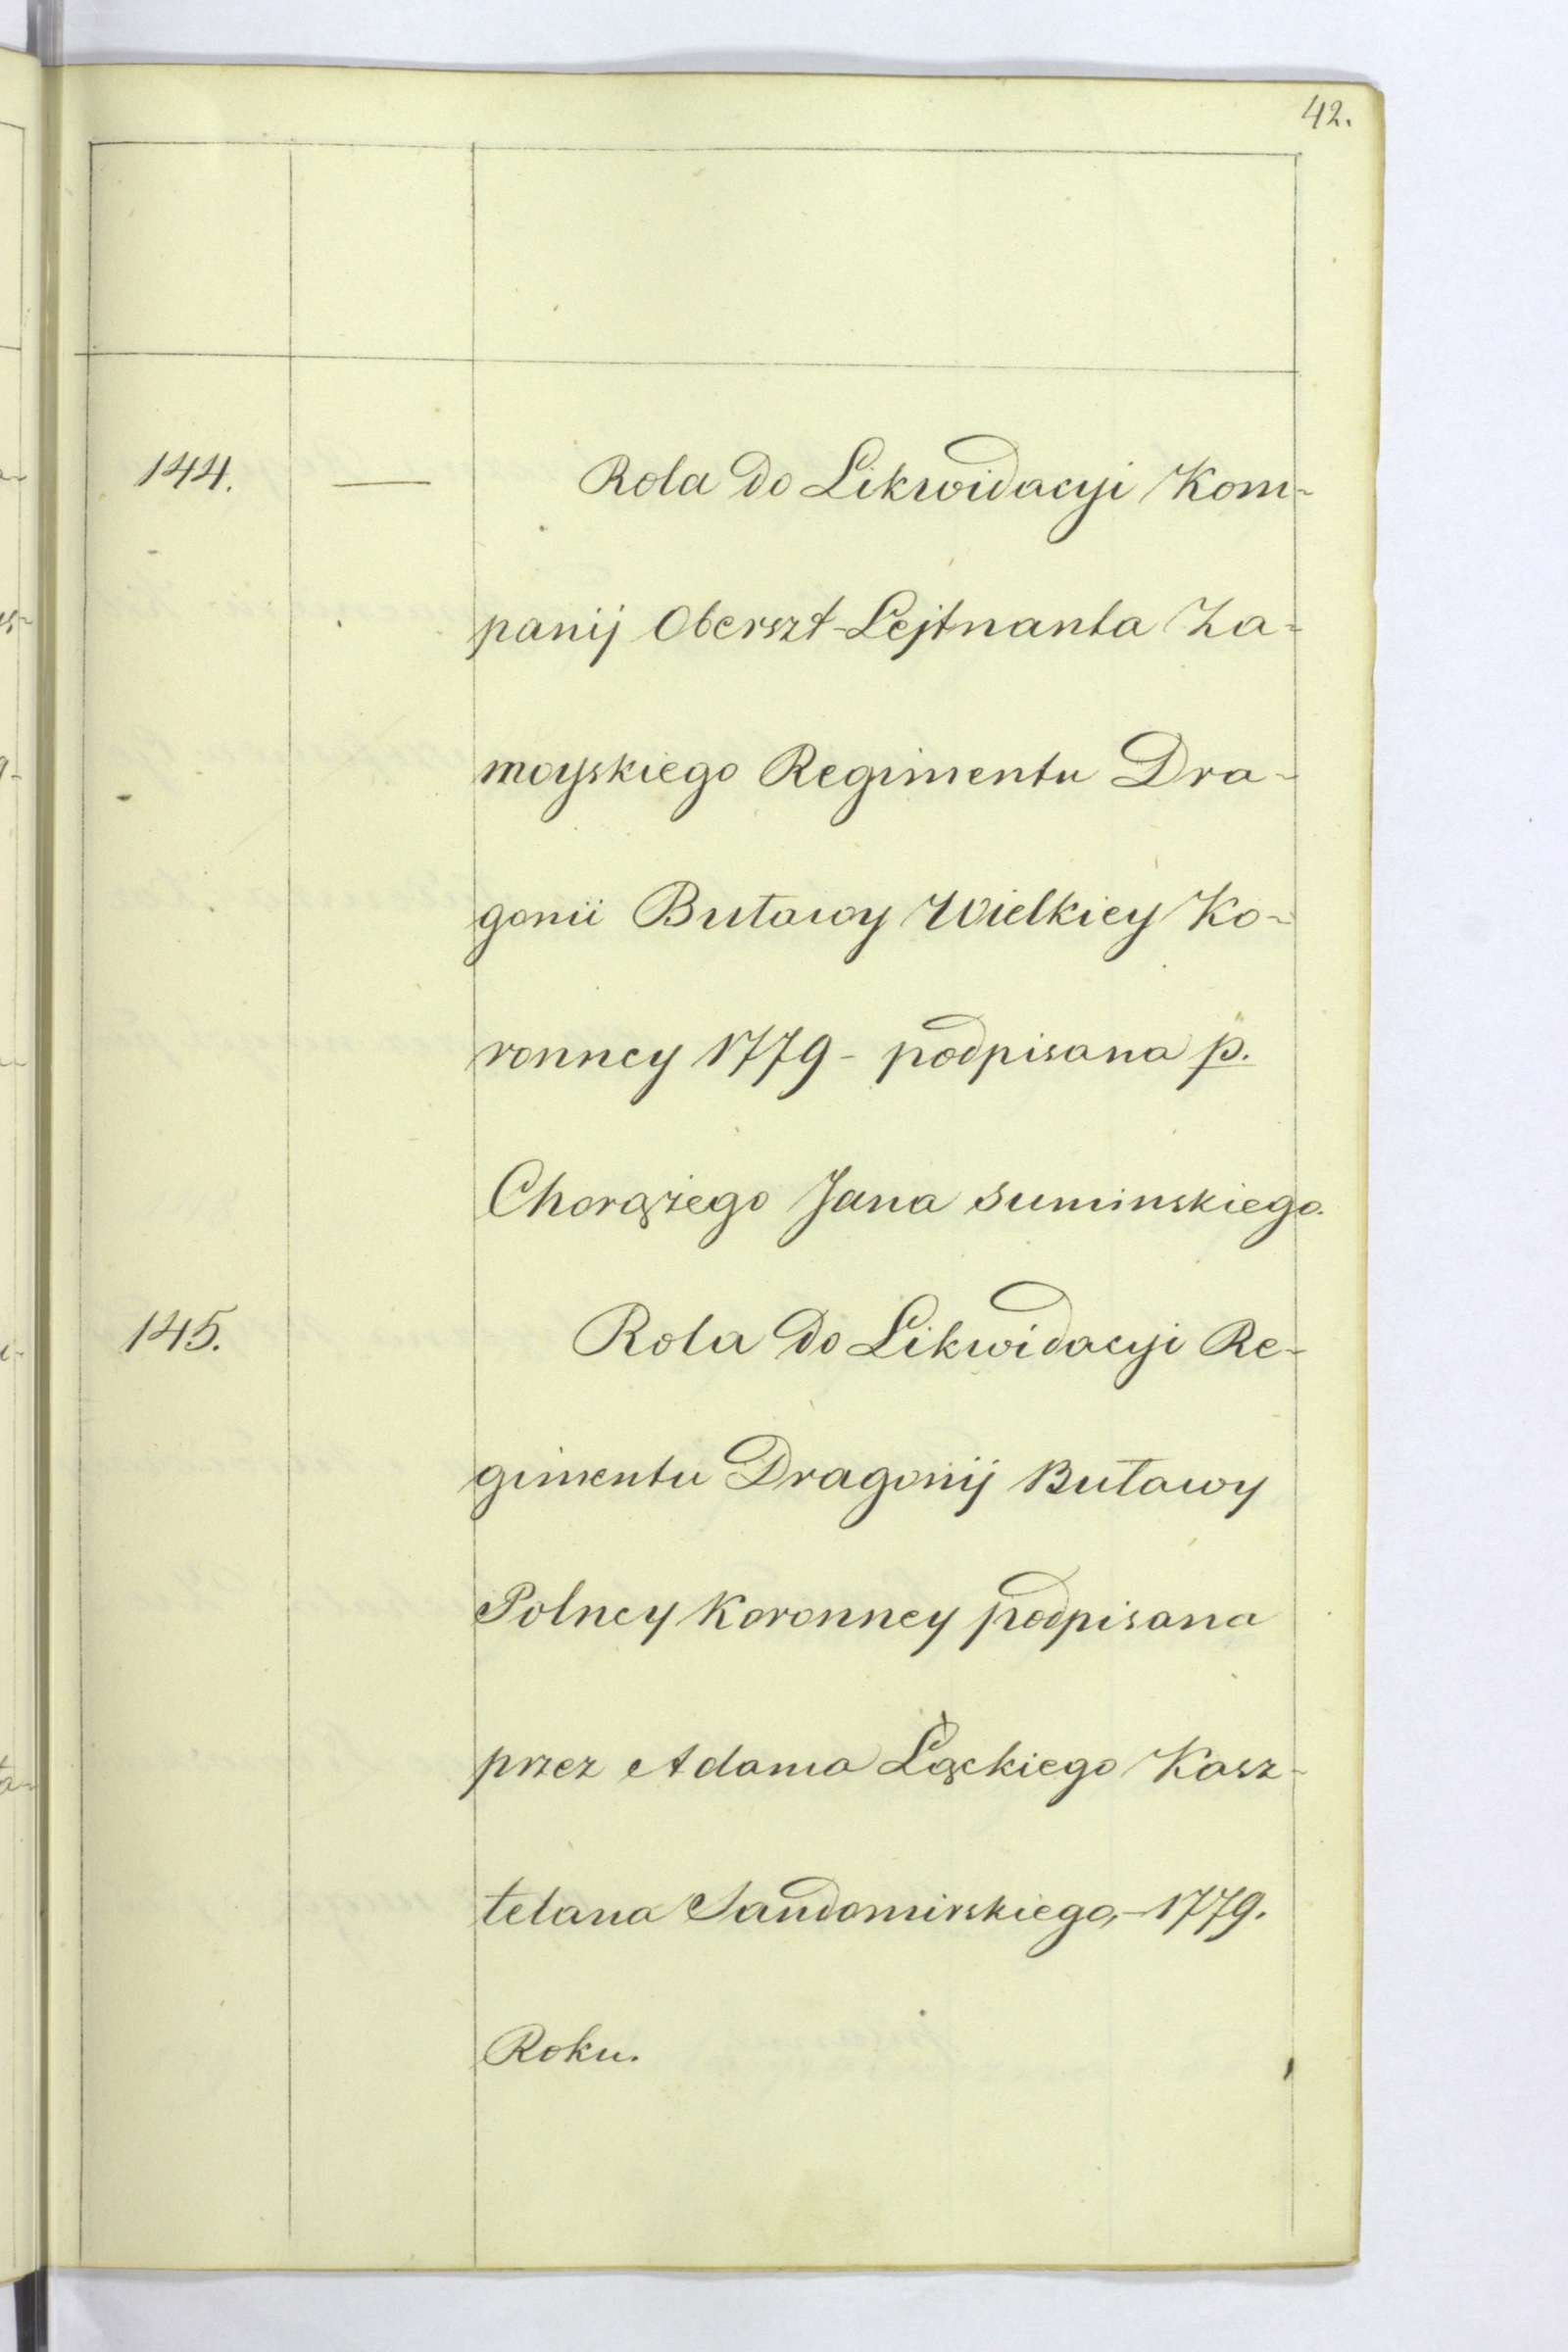 42.
144. — Rola do Likwidacyi Kom-
panij Oberszt-Lejtnanta Za-
moyskiego Regimentu Dra-
gonii Buławy Wielkiey Ko-
ronney 1779 - podpisana p.
Chorążego Jana Suminskiego.
145. Rola do Likwidacyi Re-
gimentu Dragonij Buławy
Polney Koronney podpisana
przez Adama Łąckiego Kasz-
telana Sandomirskiego, - 1779.
Roku.